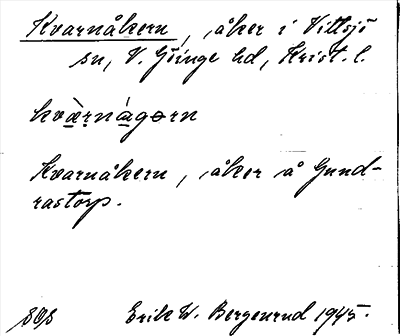 Kvarnåkern, åker i Vittsjö
sn, V. Göinge hd, Krist. l.
kvàrnágɘrn
Kvarnåkern, åker å Gund-
rastorp.
898 Erik W. Bergenrud 1945.